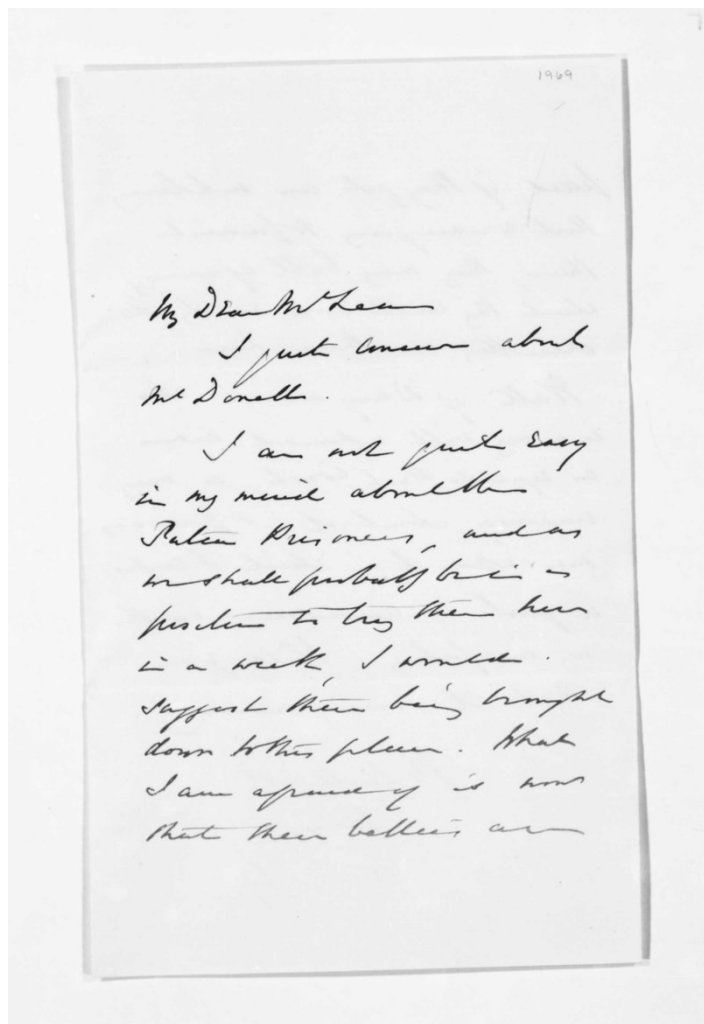 1969
My Dear McLean
I quite concur about
McDonell.
I am not quite easy
in my mind about the
Patea Prisoners, and as
we shall probably be in a
position to try them here
in a week, I would
suggest their being brought
down to this place. What
I am afraid of is now
that their bellies are